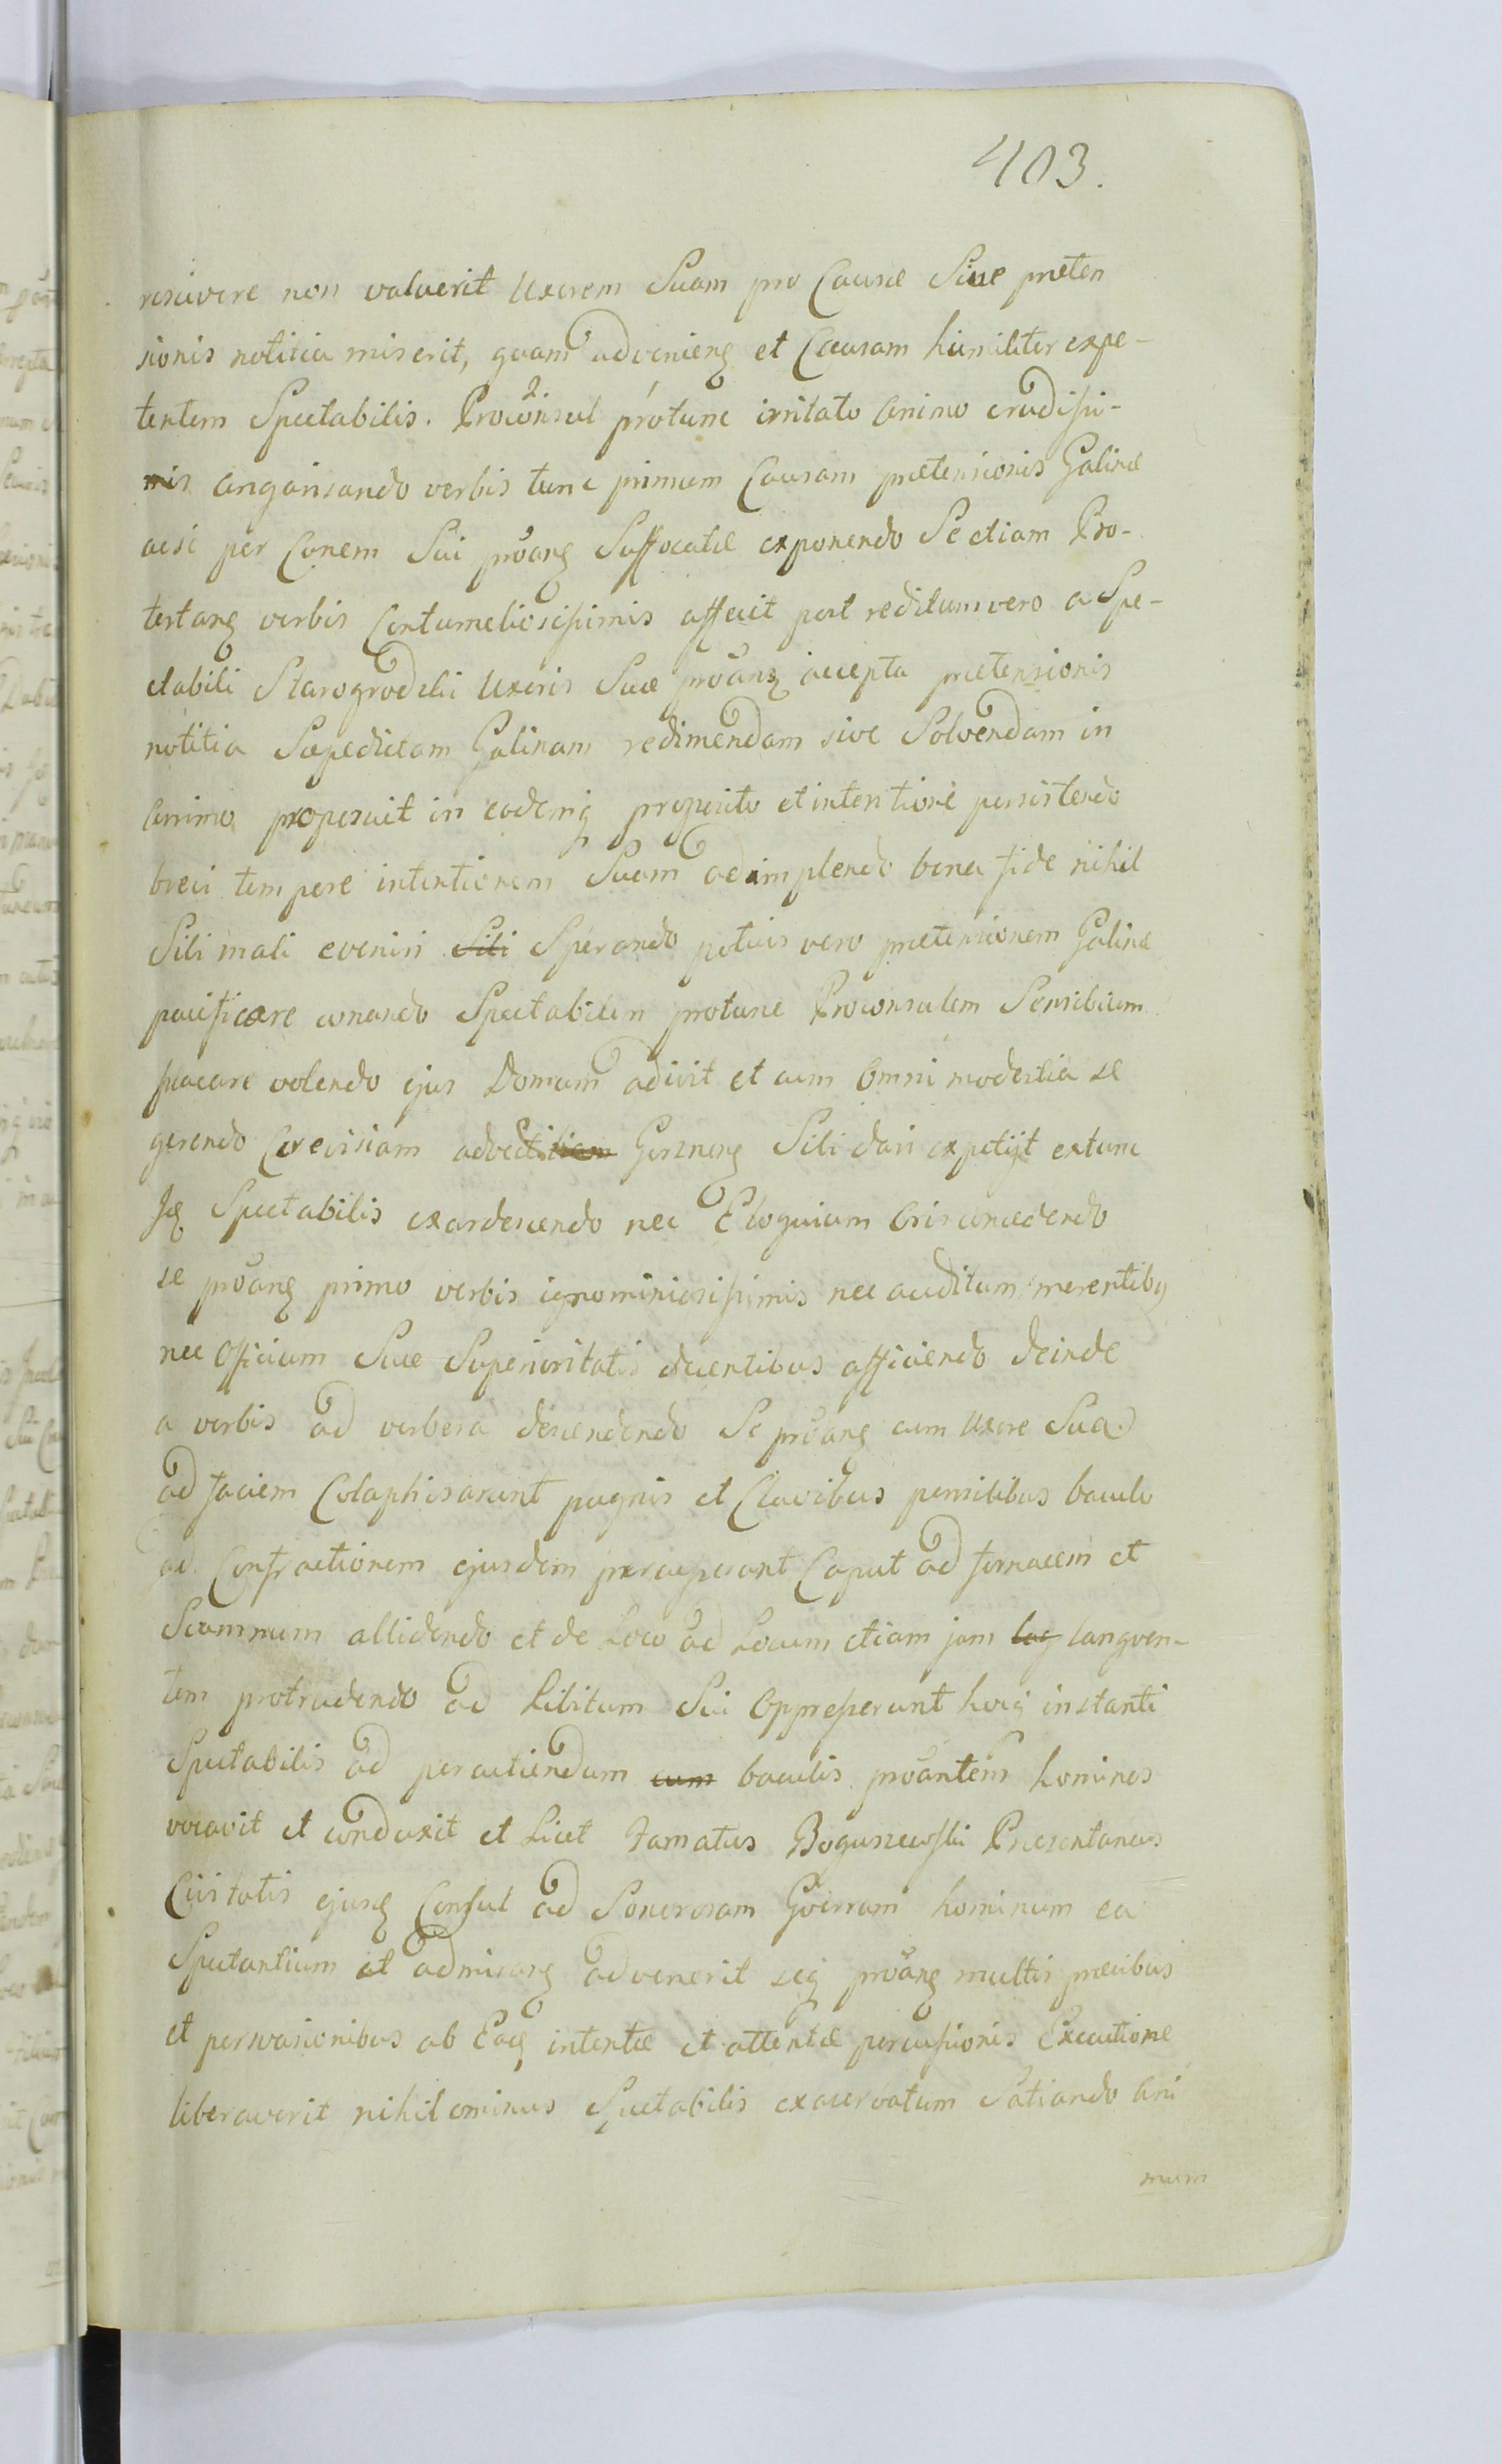 403.
rescivere non valuerit Uxorem Suam pro Causæ Sive præten
sionis notitia miserit, quam advenieng et Causam humiliter expe-
tentem Spectabilis. Proconsul protunc irritato Animo crudissi-
mis angarisando verbis tunc primum Causam prætensionis Galinæ
acsi per Canem Sui proang Suffocatæ exponendo Se etiam Pro-
testang verbis Contumeliosissimis affecit post reditum vero a Spe-
ctabili Starogrodzki Uxoris Suæ proang accepta prætensionis
notitia Sæpedictam Galinam redimendam sive Solvendam in
Animo proposuit in eodemq proposito et intentione persistendo
brevi tempore intentionem Suam adimplendo bona fide nihil
Sibi mali eveniri Sibi Sperando potius vero prætensionem Galinæ
pacificare conando Spectabilem protunc Proconsulem Sensibilem
placare volendo ejus Domum adivit et cum Omni modestia se
gerendo Cerevisiam advecti Sibi dari expetijt extunc
Spectabilis exardescendo nec Eloquium Oris concedendo
se proang primo verbis ignominiosissimis nec auditum merentibg
nec Officium Suæ Superioritatis decentibus afficiendo deinde
a verbis ad verbera descendendo Se proang cum Uxore Sua
ad faciem Colaphisarunt pugnis et Clavibus pensilibus baculo
ad Confractionem ejusdem percusserunt Caput ad fornacem et
Scamnum allidendo et de Loco ad Locum etiam jam lag langven-
tem protrudendo ad Libitum Sui Oppresserunt hocq instanti
Spectabilis ad percutiendum cum baculis proantem homines
vocavit et conduxit et Licet Famatus Boguszewski Præsentaneus
Civitatis ejusq Consul ad Sonorosam Gverram hominum ea
Spectantium et admirang advenerit seq proang multis precibus
et persvasionibus ab Eaq intentæ et attentæ percussionis Executione
liberaverit nihilominus Spectabilis exacerbatum Satiando Ani
mum